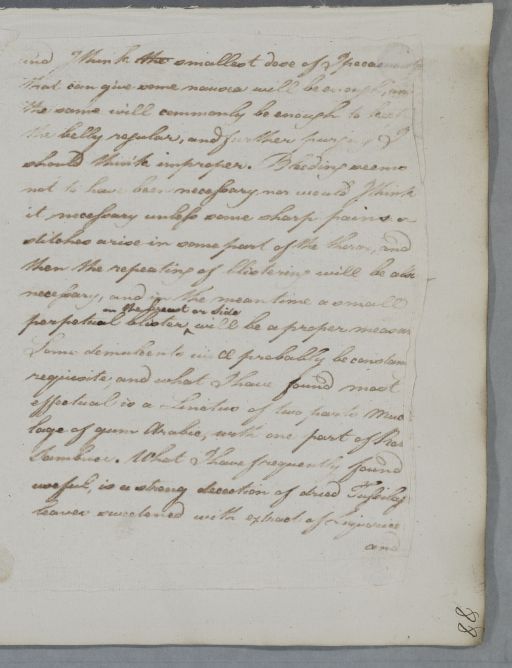 and I think the smallest dose of Ipecacuanha
that can give some nausea will be enough, and
the same will commonly be enough to keep
the belly regular, and further purging I
should think improper. Bleeding seems
not to have been necessary nor would I think
it necessary unless some sharp pains or
stitches arise in some part of the thorax, and
then the repeating of blistering will be also
necessary, and in the mean time a small
in the breast or side
perpetual blister, will be a proper measure
Some demulcents will probably be constantly
requisite and what I have found most
effectual is a Linctus of two parts Muci
lage of gum Arabic, with one part of
What I have frequently found
useful, is a strong decoction of dried Tussilago
leaves sweetened with extract of liquorice
and
88